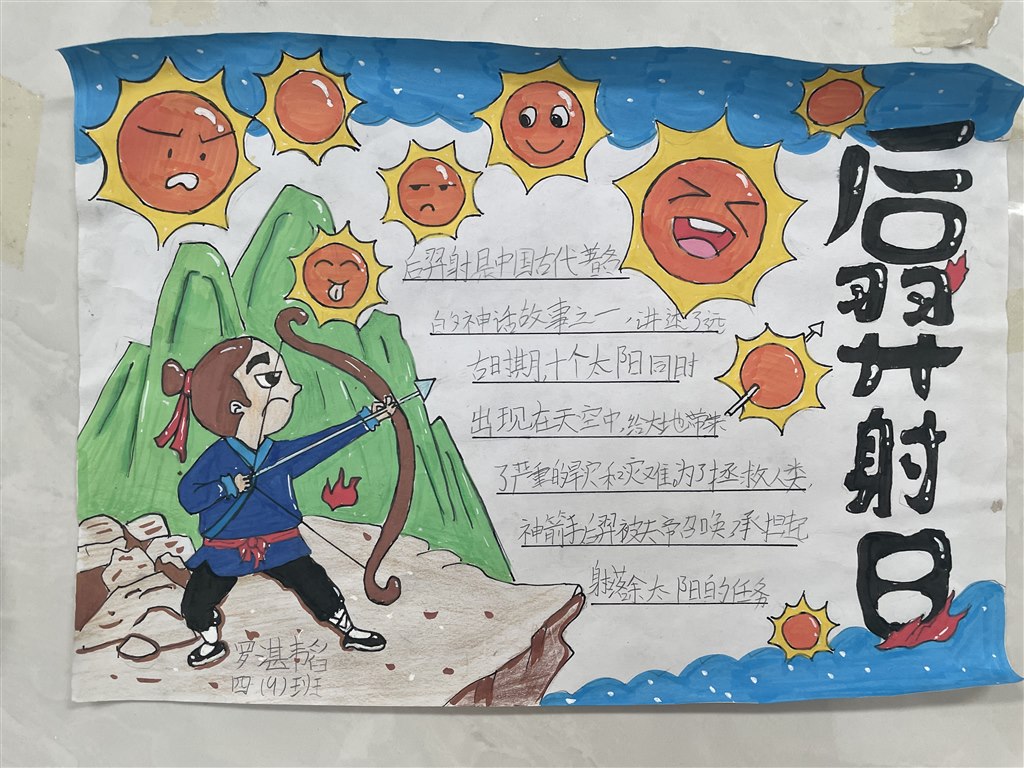 后羿射日
后羿射日是中国古代著名
的神话故事之一，讲述了远
古时期，十个太阳同时
出现在天空中，给大地带来
了严重的旱灾和灾难，为了拯救人类
神箭手后羿被天帝召唤了承担起
射落余太阳的任务
罗湛韦滔
四(9)班